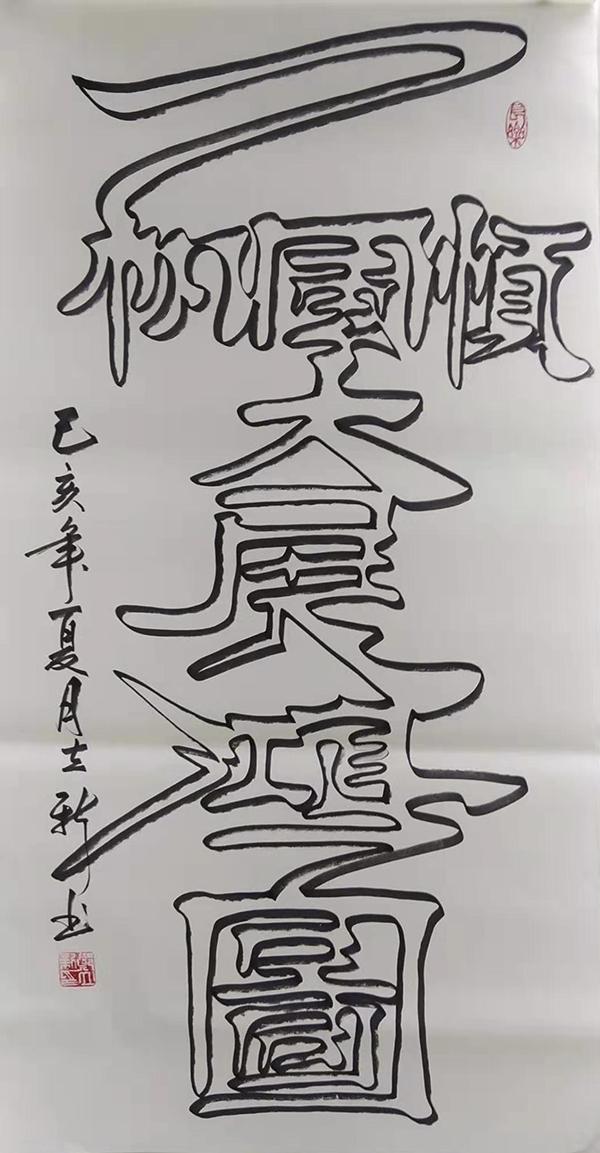 一
帆風順
大展鴻圖
己亥年夏月立新书